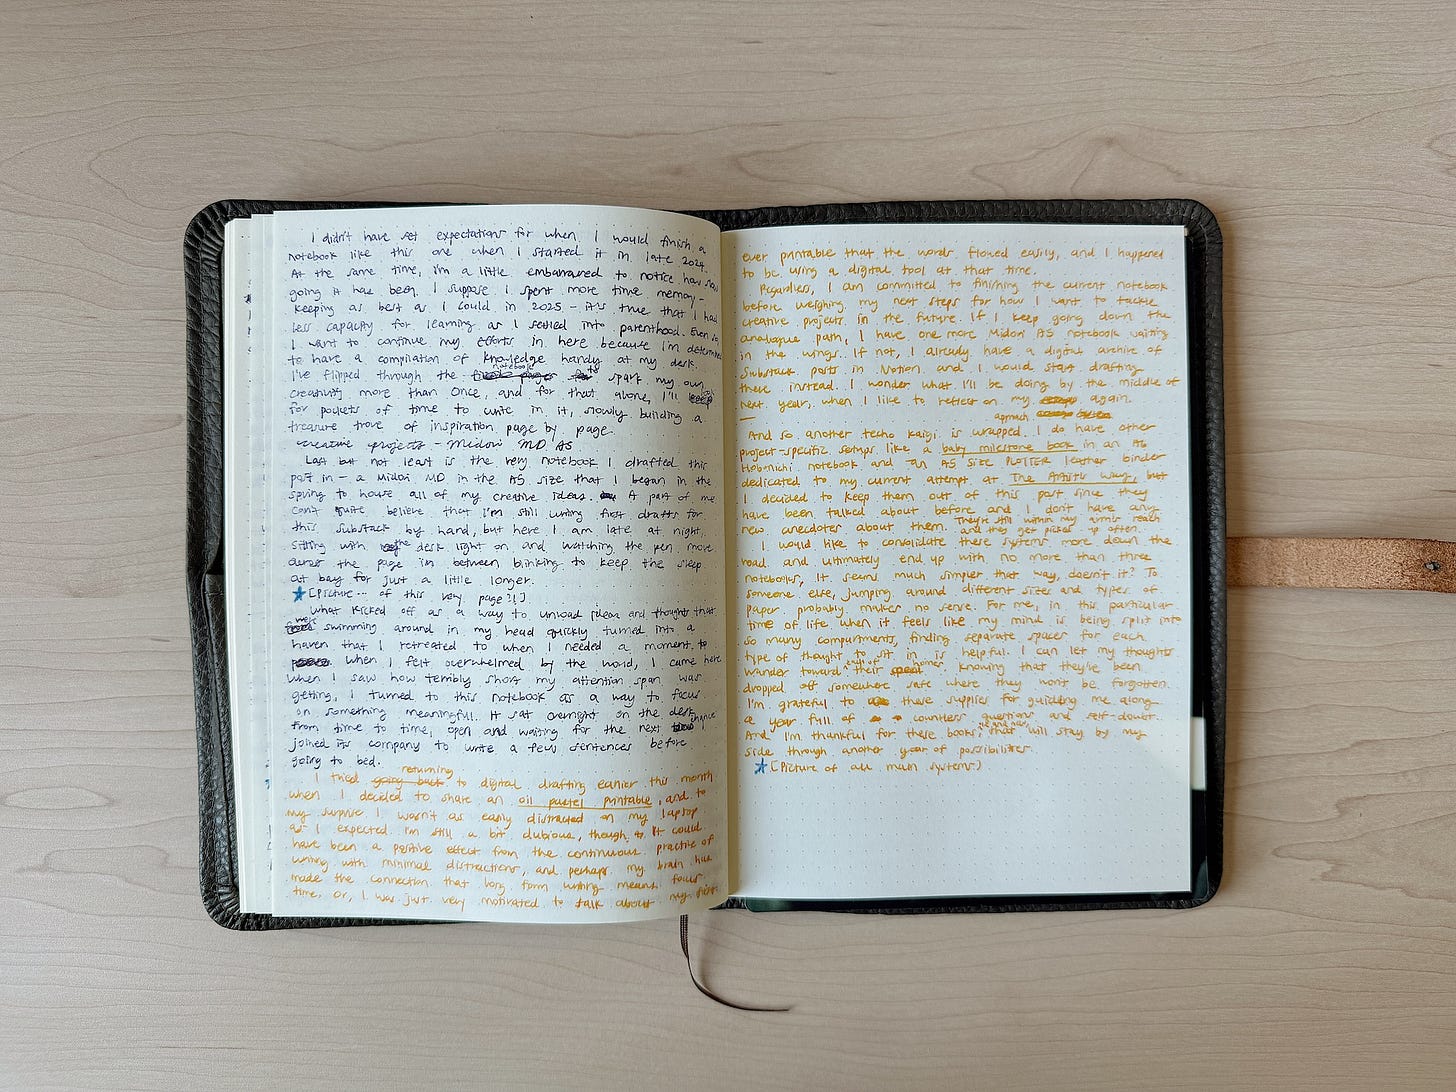 I didn't have set expectations for when I would finish a
notebook like this one when I started it in late 2024.
At the same time, I'm a little embarrassed to notice how slow
going it has been. I suppose I spent more time memory-
keeping as best as I could in 2025 - it's true that I had
less capacity for learning as I settled into parenthood. Even so,
I want to continue my efforts in here because I'm determined
to have a compilation of knowledge handy at my desk.
notebook
I've flipped through the to spark my own
creativity more than once, and for that alone, I'll look
for pockets of time to write in it, slowly building a
treasure trove of inspiration page by page.
creative projects - Midori MD A5
Last but not least is the very notebook I drafted this
post in - a Midori MD in the A5 size that I began in the
spring to house all of my creative ideas. A part of me
can't quite believe that I'm still writing first drafts for
this Substack by hand, but here I am late at night,
sitting with the desk light on and watching the pen move
across the page in between blinking to keep the sleep
at bay for just a little longer.
[Picture... of this very page?!]
What kicked off as a way to unload ideas and thoughts that
were swimming around in my head quickly turned into a
haven that I retreated to when I needed a moment to
when I felt overwhelmed by the world, I came here
When I saw how terribly short my attention span was
getting, I turned to this notebook as a way to focus
on something meaningful. It sat overnight on the desk
from time to time, open and waiting for the next chance I
joined its company to write a few sentences before
going to bed.
returning
I tried going back to digital drafting earlier this month
when I decided to share an oil pastel printable, and to
my surprise I wasn't as easily distracted on my laptop
as I expected. I'm still a bit dubious, though. It could
have been a positive effect from the continuous practice of
writing with minimal distractions, and perhaps my brain has
made the connection that long form writing means focus
time. Or, I was just very motivated to talk about my first
ever printable that the words flowed easily, and I happened
to be using a digital tool at that time.
Regardless, I am committed to finishing the current notebook
before weighing my next steps for how I want to tackle
creative projects in the future. If I keep going down the
analogue path, I have one more Midori A5 notebook waiting
in the wings. If not, I already have a digital archive of
Substack posts in Notion and I would start drafting
there instead. I wonder what I'll be doing by the middle of
next year, when I like to reflect on my again.
approach
And so another techo kaigi is wrapped. I do have other
project-specific setups like a baby milestone book in an A6
Hobonichi notebook and an A5 size PLOTTER leather binder
dedicated to my current attempt at The Artist's Way, but
I decided to keep them out of this post since they
have been talked about before and I don't have any
new anecdotes about them. They're still within my arm's reach
and they get picked up often.
I would like to consolidate these systems more down the
road and ultimately end up with no more than three
notebooks. It seems much simpler that way, doesn't it? To
someone else, jumping around different sizes and types of
paper probably makes no sense. For me, in this particular
time of life when it feels like my mind is being split into
so many compartments, finding separate spaces for each
type of thought to sit in is helpful. I can let my thoughts
wander toward their homes, knowing that they've been
dropped off somewhere safe where they won't be forgotten.
I'm grateful to these supplies for guiding me along
a year full of countless questions and self-doubt.
And I'm thankful for these books that will stay by my
side through another year of possibilities.
[Picture of all main systems]